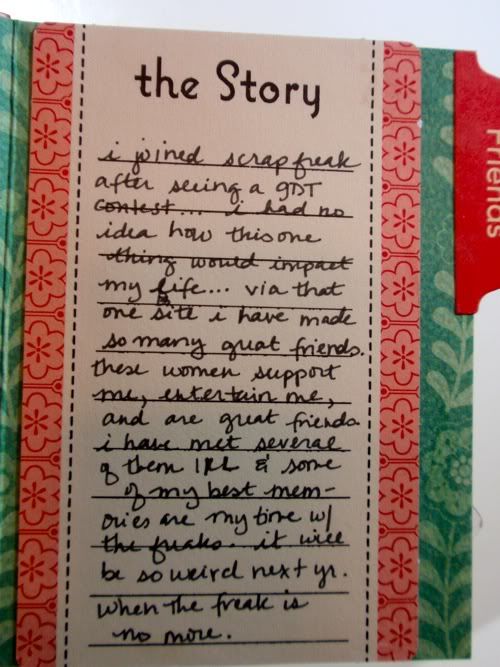 the Story
Friends
i joined scrapfreak
after seeing a GDT
contest... i had no
idea how this one
thing would impact
my life... via that
one site i have made
so many great friends.
these women support
me, entertain me,
and are great friends.
i have met several
of them IRL & some
of my best mem-
ories are my time w/
the freaks. it will
be so weird next yr.
when the freak is
no more.